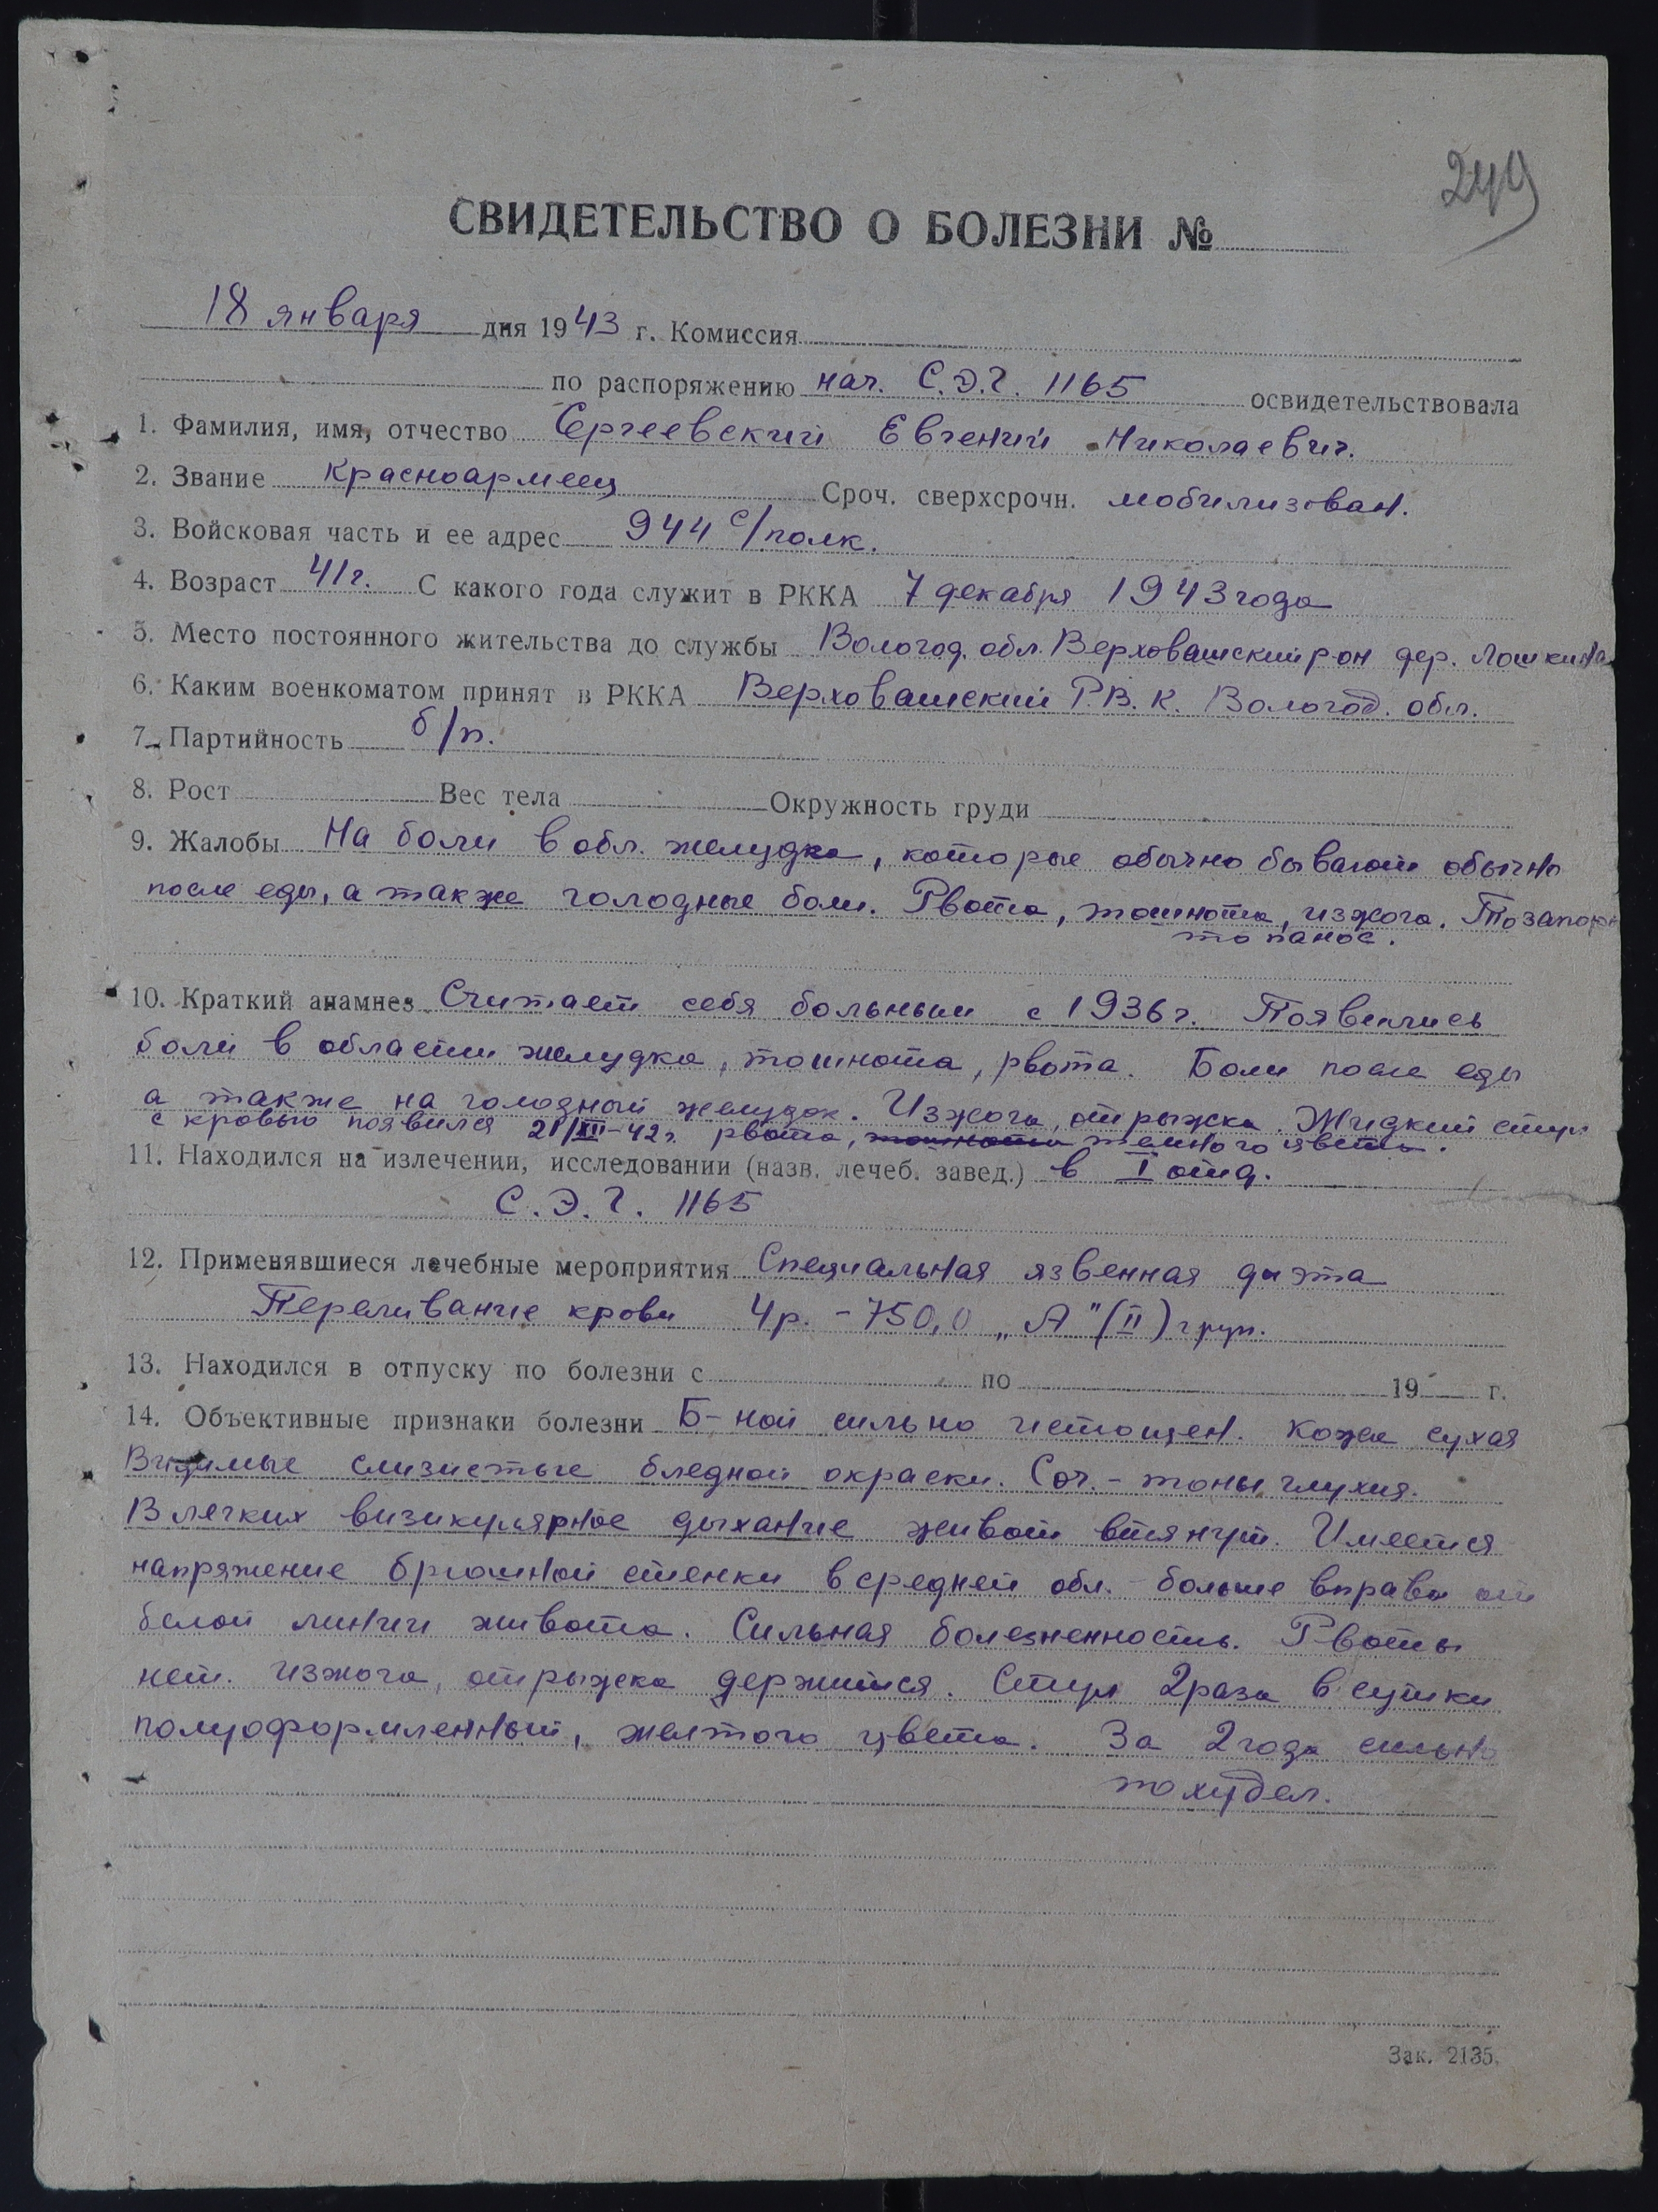 249
СВИДЕТЕЛЬСТВО О БОЛЕЗНИ №
18 января дня 1943 г. Комиссия
по распоряжению нач. С.Э.Г. 1165 освидетельствовала
1. Фамилия, имя, отчество Сергеевский Евгений Николаевич.
2. Звание Красноармеец Сроч. сверхсрочн. мобилизован.
3. Войсковая часть и ее адрес 944 с/полк.
4. Возраст 41 г. С какого года служит в РККА 7 декабря 1943 года
5. Место постоянного жительства до службы Вологод. обл. Верховашский рон дер. Лошкина
6. Каким военкоматом принят в РККА Верховашский Р.В.К. Вологод. обл.
7. Партийность б/п.
8. Рост Вес тела Окружность груди
9. Жалобы На боли в обл. желудка, которые обычно бывают обычно
после еды, а также голодные боли. Рвота, тошнота, изжога. То запоры
то панос.
10. Краткий анамнез Считает себя больным с 1936 г. Появились
боли в области желудка, тошнота, рвота. Боли после еды
а также на голодный желудок. Изжога, отрыжка. Жидкий стул
с кровью появился 21/XII-42 г. рвота, тошнота темного цвета.
11. Находился на излечении, исследовании (назв. лечеб. завед.) в I отд.
С.Э.Г. 1165
12. Применявшиеся лечебные мероприятия Специальная язвенная диэта
Переливание крови 4 р. - 750,0 „А" (II) груп.
13. Находился в отпуску по болезни с по 19 г.
14. Объективные признаки болезни Б-ной сильно истощен. Кожа сухая
Видимые слизистые бледной окраски. Сер. - тоны глухия.
В легких визикулярное дыхание живот втянут. Имеется
напряжение брюшной стенки в средней обл. - больше вправо от
белой линии живота. Сильная болезненность. Рвоты
нет. Изжога, отрыжка держится. Стул 2 раза в сутки
полуоформленный, желтого цвета. За 2 года сильно
похудел.
Зак. 2135.